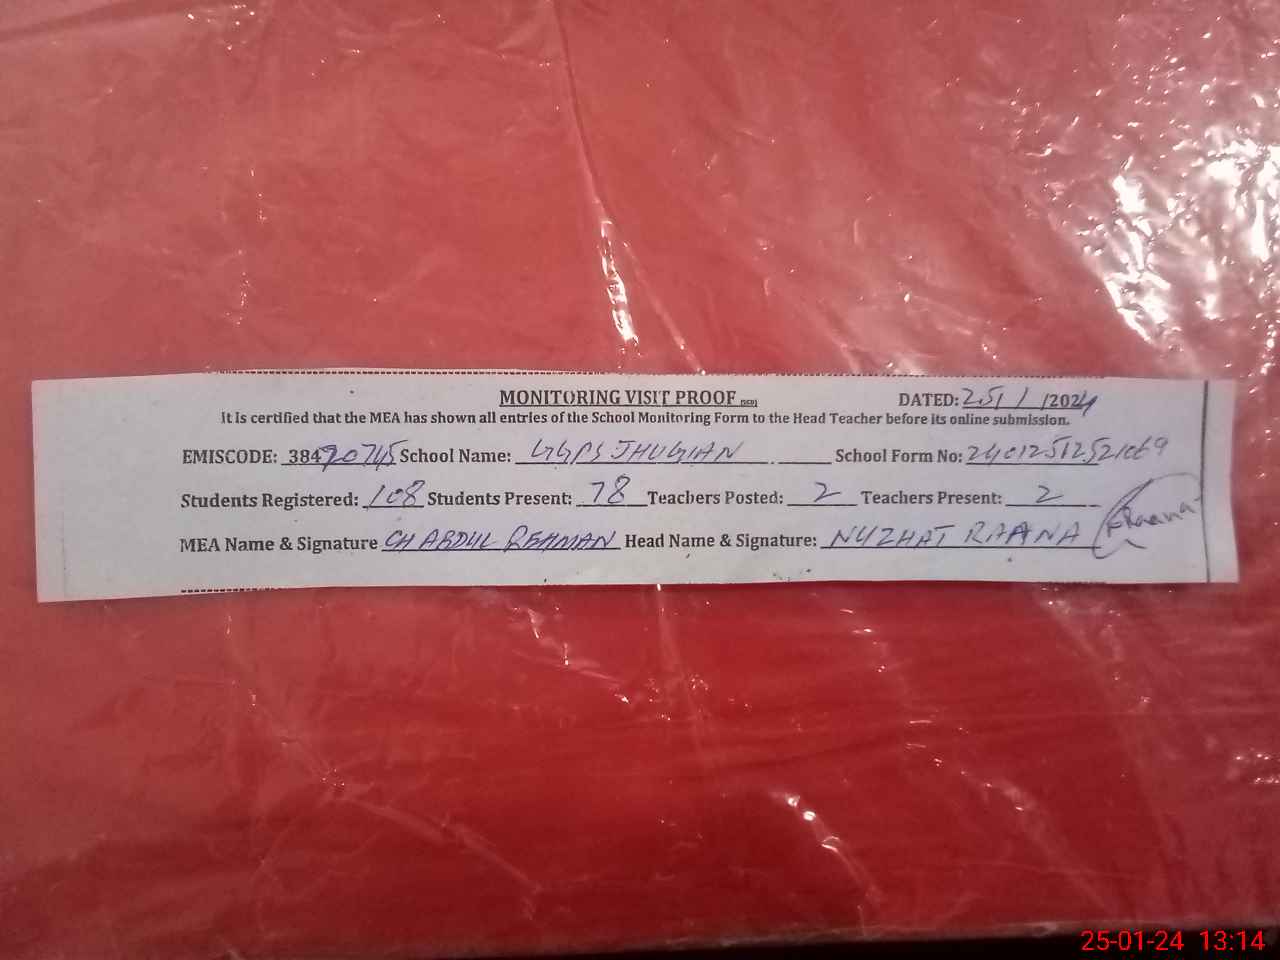 MONITORING VISIT PROOF DATED: 25/1/2024
it is certified that the MEA has shown all entries of the School Monitoring Form to the Head Teacher before its online submission.
EMISCODE: 38420745 School Name: GGPS JHUGIAN School Form No:
Students Registered: 108 Students Present: 78 Teachers Posted: 2 Teachers Present: 2
MEA Name & Signature CH ABDUL REHMAN Head Name & Signature: NUZHAT RAANA Raana
25-01-24 13:14